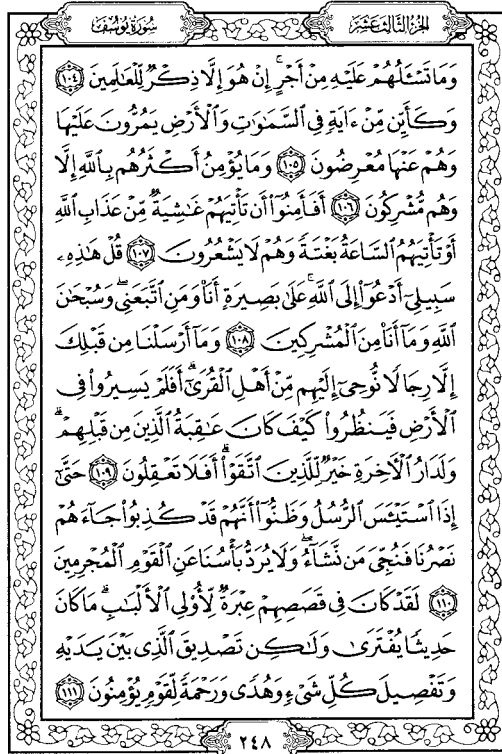 سُورَةُ يُوسُفَ
الجُزْءُ الثَّالِثَ عَشَرَ
وَمَا تَسْـَٔلُهُمْ عَلَيْهِ مِنْ أَجْرٍ ۚ إِنْ هُوَ إِلَّا ذِكْرٌ لِّلْعَٰلَمِينَ ١٠٤
وَكَأَيِّن مِّنْ ءَايَةٍ فِى ٱلسَّمَٰوَٰتِ وَٱلْأَرْضِ يَمُرُّونَ عَلَيْهَا
وَهُمْ عَنْهَا مُعْرِضُونَ ١٠٥ وَمَا يُؤْمِنُ أَكْثَرُهُم بِٱللَّهِ إِلَّا
وَهُم مُّشْرِكُونَ ١٠٦ أَفَأَمِنُوٓا۟ أَن تَأْتِيَهُمْ غَٰشِيَةٌ مِّنْ عَذَابِ ٱللَّهِ
أَوْ تَأْتِيَهُمُ ٱلسَّاعَةُ بَغْتَةً وَهُمْ لَا يَشْعُرُونَ ١٠٧ قُلْ هَٰذِهِۦ
سَبِيلِىٓ أَدْعُوٓا۟ إِلَى ٱللَّهِ ۚ عَلَىٰ بَصِيرَةٍ أَنَا۠ وَمَنِ ٱتَّبَعَنِى ۖ وَسُبْحَٰنَ
ٱللَّهِ وَمَآ أَنَا۠ مِنَ ٱلْمُشْرِكِينَ ١٠٨ وَمَآ أَرْسَلْنَا مِن قَبْلِكَ
إِلَّا رِجَالًا نُّوحِىٓ إِلَيْهِم مِّنْ أَهْلِ ٱلْقُرَىٰٓ ۗ أَفَلَمْ يَسِيرُوا۟ فِى
ٱلْأَرْضِ فَيَنظُرُوا۟ كَيْفَ كَانَ عَٰقِبَةُ ٱلَّذِينَ مِن قَبْلِهِمْ ۗ
وَلَدَارُ ٱلْـَٔاخِرَةِ خَيْرٌ لِّلَّذِينَ ٱتَّقَوْا۟ ۗ أَفَلَا تَعْقِلُونَ ١٠٩ حَتَّىٰٓ
إِذَا ٱسْتَيْـَٔسَ ٱلرُّسُلُ وَظَنُّوٓا۟ أَنَّهُمْ قَدْ كُذِبُوا۟ جَآءَهُمْ
نَصْرُنَا فَنُجِّىَ مَن نَّشَآءُ ۖ وَلَا يُرَدُّ بَأْسُنَا عَنِ ٱلْقَوْمِ ٱلْمُجْرِمِينَ
١١٠ لَقَدْ كَانَ فِى قَصَصِهِمْ عِبْرَةٌ لِّأُو۟لِى ٱلْأَلْبَٰبِ ۗ مَا كَانَ
حَدِيثًا يُفْتَرَىٰ وَلَٰكِن تَصْدِيقَ ٱلَّذِى بَيْنَ يَدَيْهِ
وَتَفْصِيلَ كُلِّ شَىْءٍ وَهُدًى وَرَحْمَةً لِّقَوْمٍ يُؤْمِنُونَ ١١١
٢٤٨